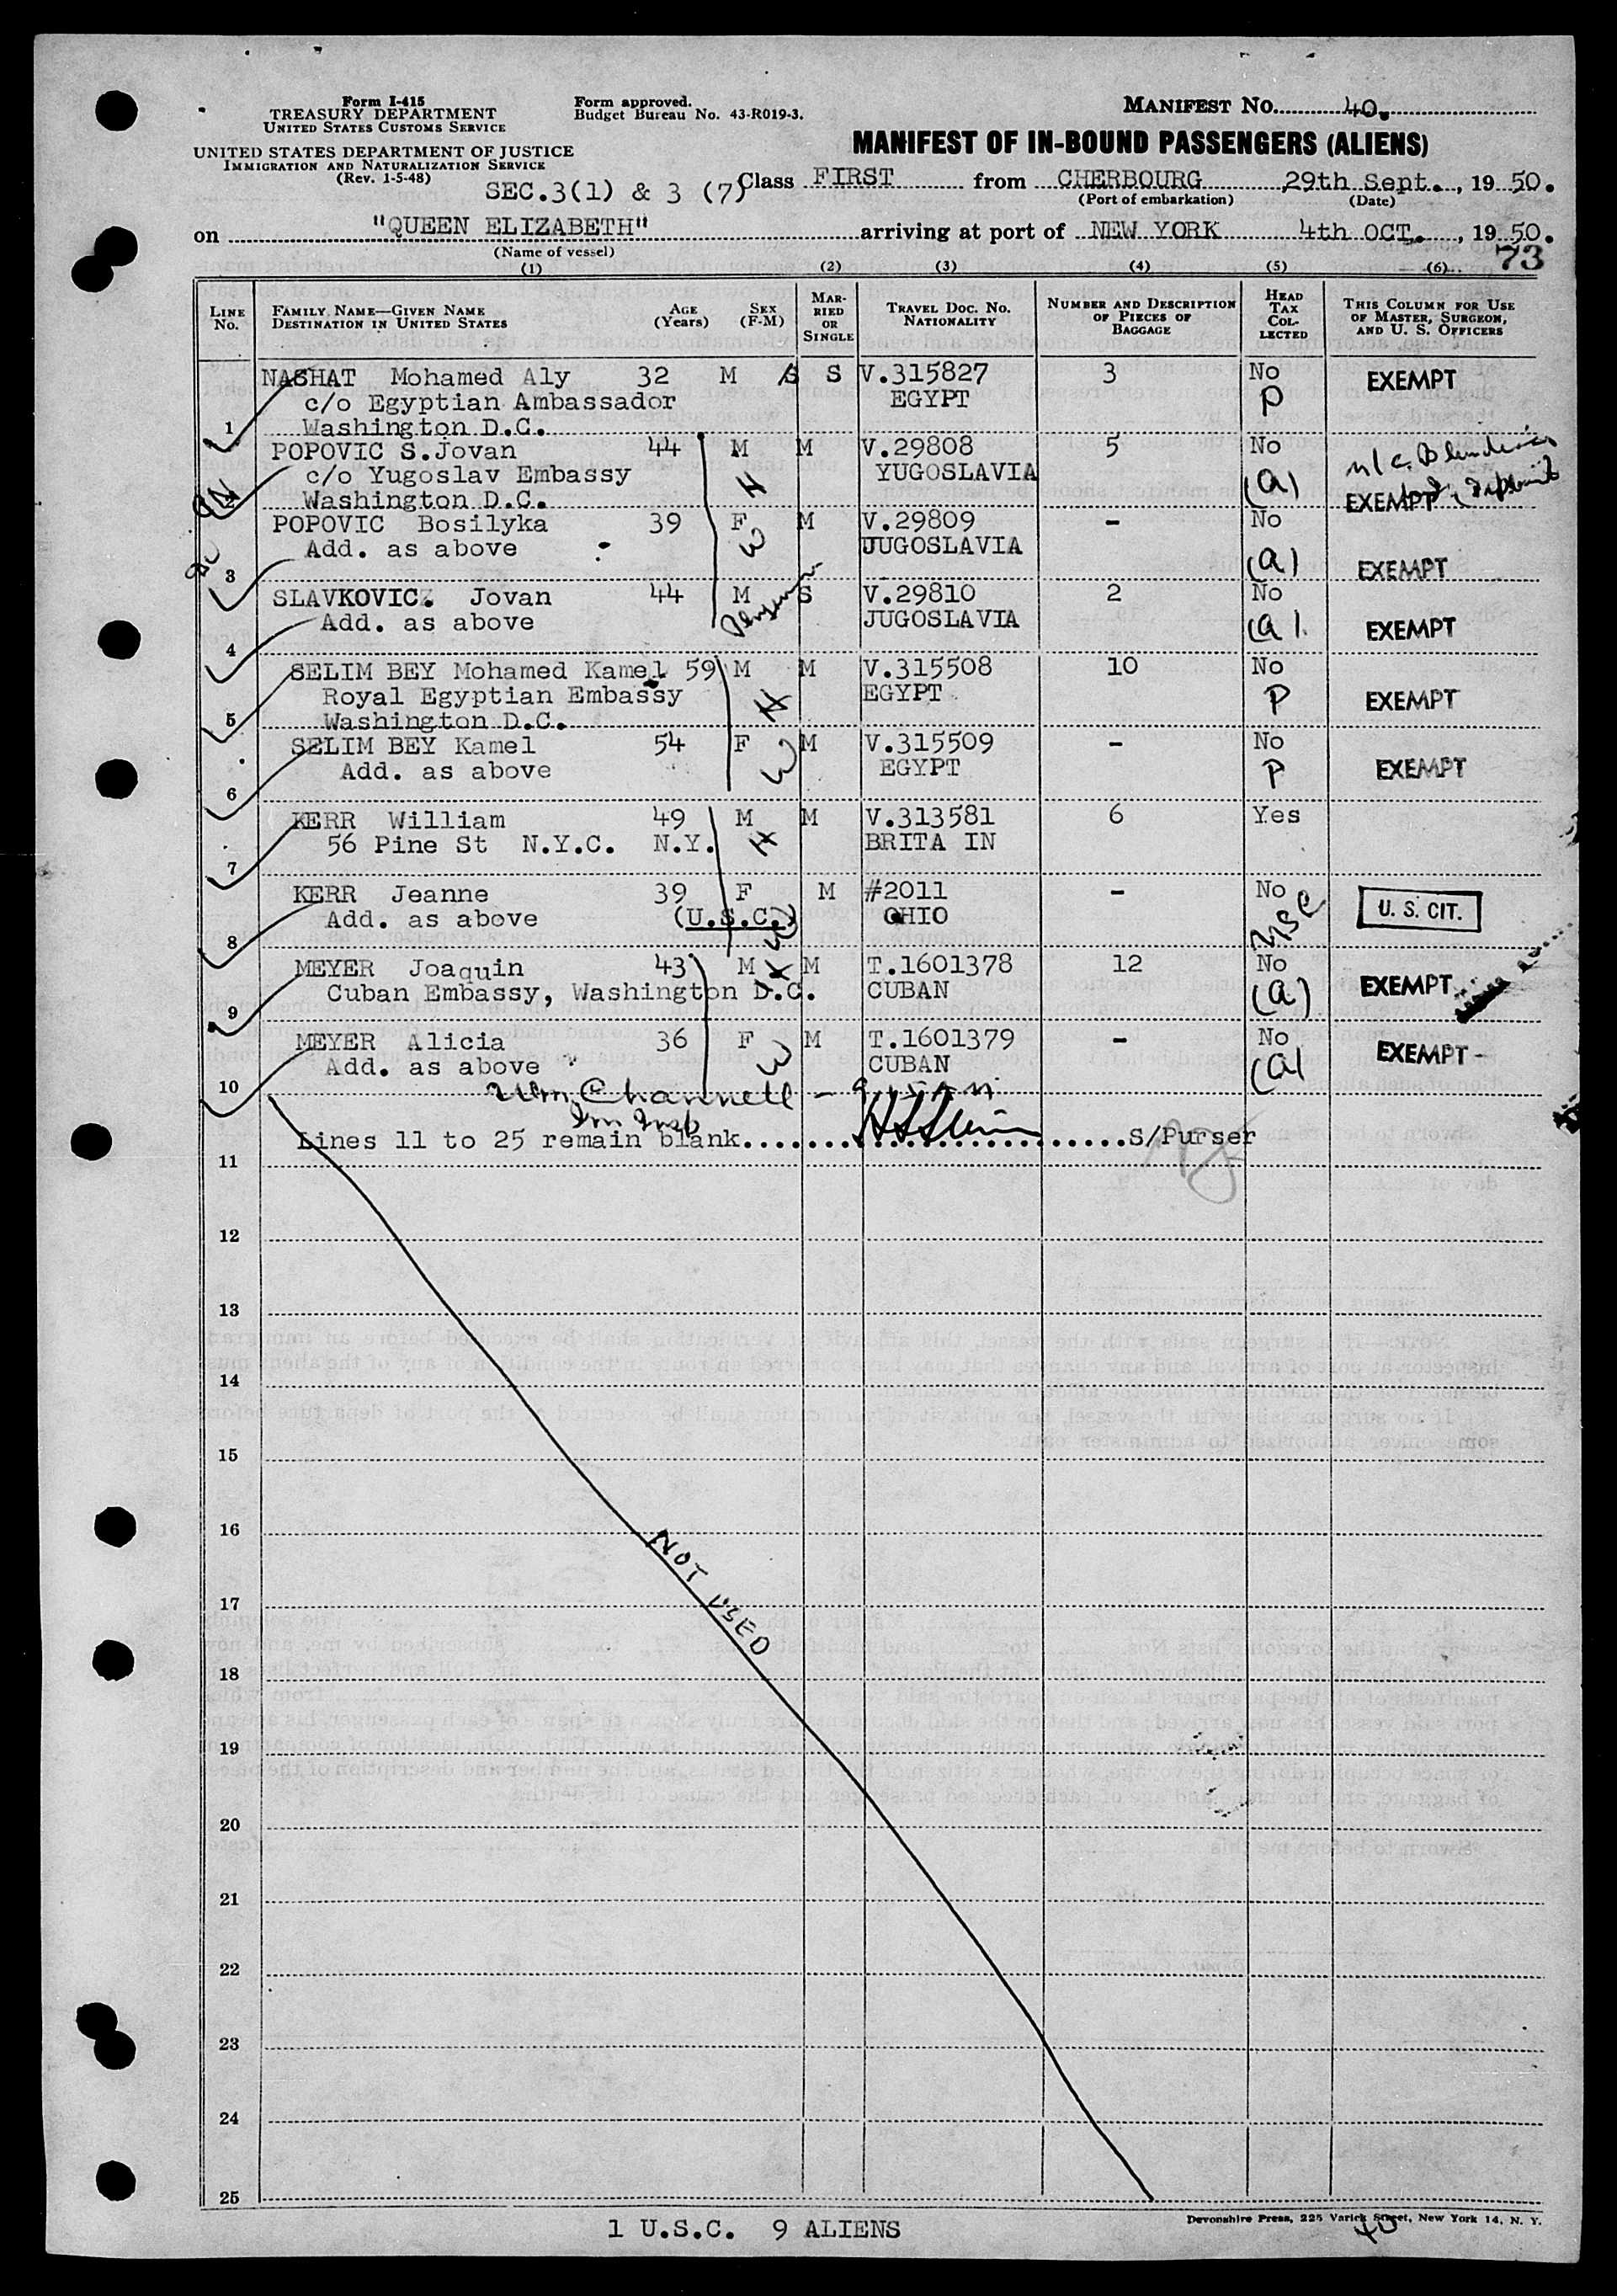 Form I-415
TREASURY DEPARTMENT
UNITED STATES CUSTOMS SERVICE
UNITED STATES DEPARTMENT OF JUSTICE
IMMIGRATION AND NATURALIZATION SERVICE
(Rev. 1-5-48)
Form approved.
Budget Bureau No. 43-R019-3.
MANIFEST No. 40.
MANIFEST OF IN-BOUND PASSENGERS (ALIENS)
SEC.3(1) & 3 (7) Class FIRST from CHERBOURG 29th Sept. , 19 50.
(Port of embarkation) (Date)
on "QUEEN ELIZABETH" arriving at port of NEW YORK 4th OCT. , 19 50.
(Name of vessel)
73
(1) (2) (3) (4) (5) (6)
LINE No. FAMILY NAME—GIVEN NAME DESTINATION IN UNITED STATES AGE (Years) SEX (F-M) MARRIED OR SINGLE TRAVEL DOC. NO. NATIONALITY NUMBER AND DESCRIPTION OF PIECES OF BAGGAGE HEAD TAX COLLECTED THIS COLUMN FOR USE OF MASTER, SURGEON, AND U. S. OFFICERS
NASHAT Mohamed Aly 32 M S S V.315827 3 No EXEMPT
c/o Egyptian Ambassador EGYPT P
1 Washington D.C.
POPOVIC S.Jovan 44 M M V.29808 5 No
c/o Yugoslav Embassy H YUGOSLAVIA (a)
2 Washington D.C. EXEMPT
POPOVIC Bosilyka 39 F M V.29809 - No
Add. as above W JUGOSLAVIA (a) EXEMPT
3
SLAVKOVIC. Jovan 44 M S V.29810 2 No
Add. as above JUGOSLAVIA (a). EXEMPT
4
SELIM BEY Mohamed Kamel 59 M M V.315508 10 No
Royal Egyptian Embassy H EGYPT P EXEMPT
5 Washington D.C.
SELIM BEY Kamel 54 F M V.315509 - No
Add. as above W EGYPT P EXEMPT
6
KERR William 49 M M V.313581 6 Yes
56 Pine St N.Y.C. N.Y. H BRITA IN
7
KERR Jeanne 39 F M #2011 - No U. S. CIT.
Add. as above (U.S.C.) W OHIO USC
8
MEYER Joaquin 43 M H M T.1601378 12 No
Cuban Embassy, Washington D.C. CUBAN (a) EXEMPT
9
MEYER Alicia 36 F M T.1601379 - No EXEMPT-
Add. as above " W CUBAN (a)
10
Wm Channell
Im Insp
Lines 11 to 25 remain blank. S/Purser
11
12
13
14
15
16
NOT USED
17
18
19
20
21
22
23
24
25
1 U.S.C. 9 ALIENS
Devonshire Press, 225 Varick Street, New York 14, N. Y.
40